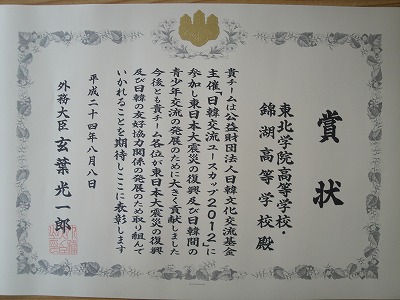 賞状
東北学院高等学校・
錦湖高等学校殿
貴チームは公益財団法人日韓文化交流基金
主催「日韓交流ユースカップ2012」に
参加し東日本大震災の復興及び日韓間の
青少年交流の発展のために大きく貢献しました
今後とも貴チーム各位が東日本大震災の復興
及び日韓の友好協力関係の発展のため取り組んで
いかれることを期待しここに表彰します
平成二十四年八月八日
外務大臣 玄葉光一郎